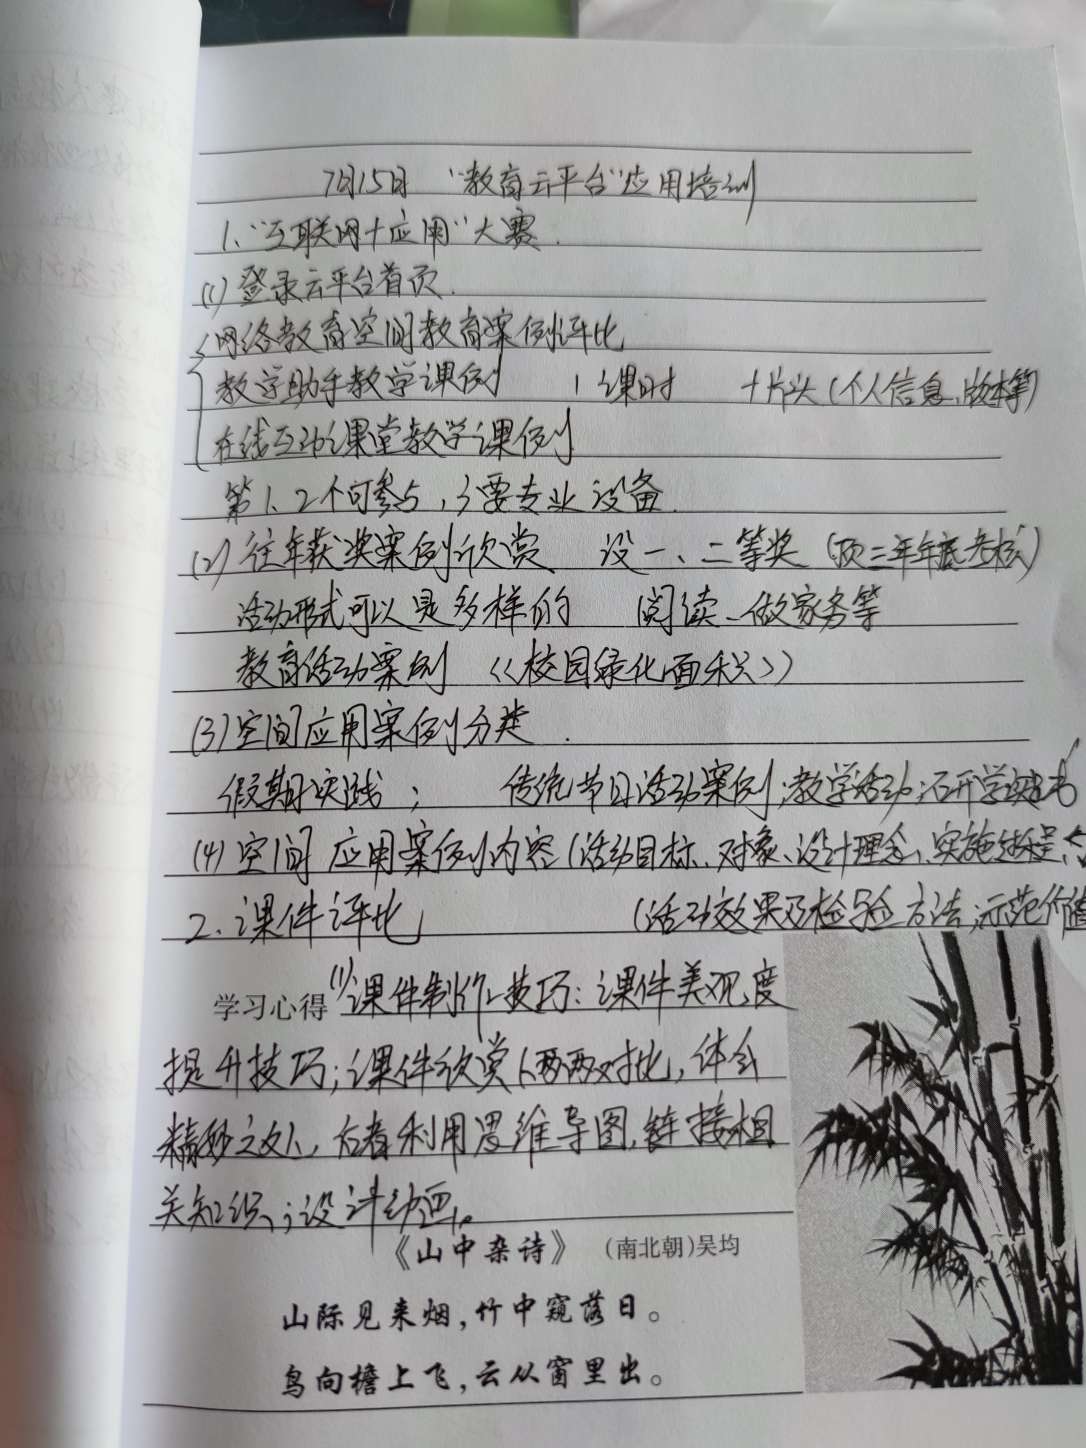 7月15日 “教育云平台”应用培训
1、“互联网+应用”大赛.
(1)登录云平台首页.
网络教育空间教育案例评比
教学助手教学课例 1课时 +片头(个人信息、版本等)
在线互动课堂教学课例
第1、2个可参与,3要专业设备.
(2)往年获奖案例欣赏 设一、二等奖 (顶三年年底考核)
活动形式可以是多样的 阅读、做家务等
教育活动案例 《校园绿化面积》
(3)空间应用案例分类.
假期实践; 传统节日活动案例;教学活动;
(4)空间应用案例内容(活动目标、对象、设计理念、实施过程、
2.课件评比 (活动效果及检验方法;示范价值
学习心得 (1)课件制作技巧:课件美观度
提升技巧;课件欣赏(两两对比,体会
精妙之处),后者利用思维导图,链接相
关知识;设计动画。
《山中杂诗》 (南北朝)吴均
山际见来烟,竹中窥落日。
鸟向檐上飞,云从窗里出。